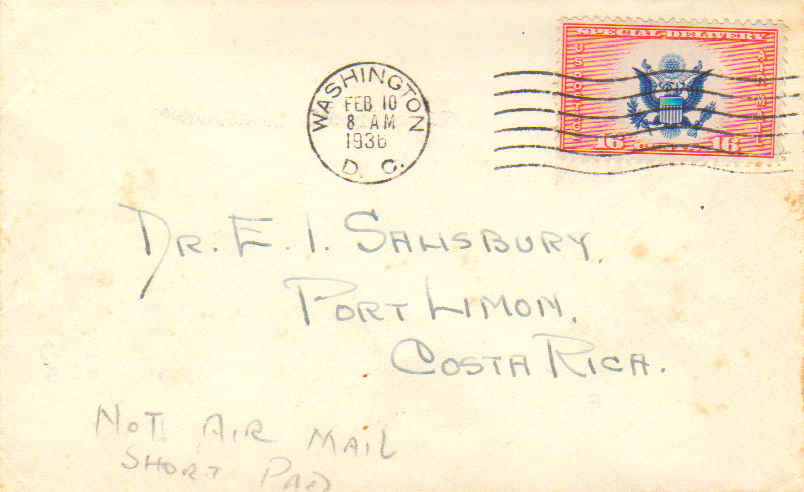 SPECIAL DELIVERY
U.S. POSTAGE
AIR MAIL
16 CENTS 16
WASHINGTON
FEB 10
8 AM
1936
D. C.
DR. E. I. SALISBURY,
PORT LIMON,
COSTA RICA.
NOT AIR MAIL
SHORT PAID